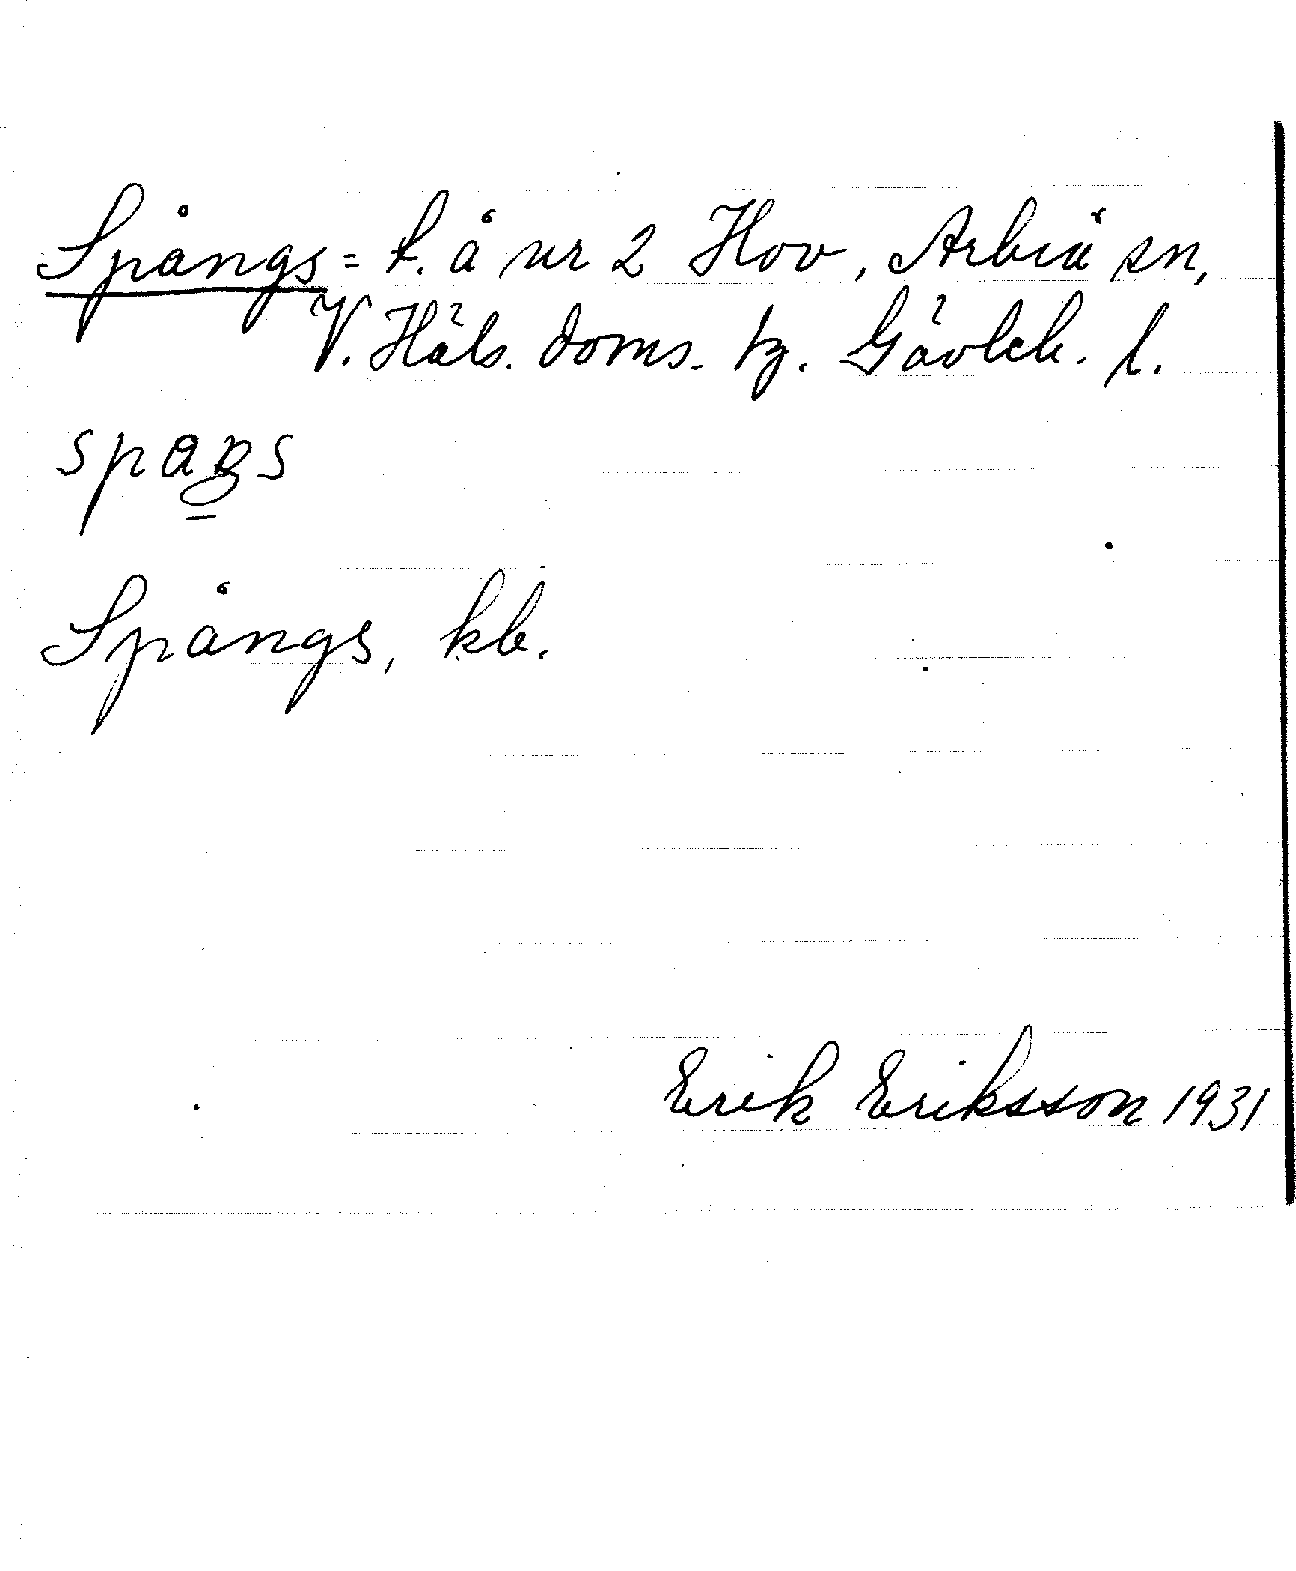 Spångs = t. å nr 2 Hov, Arbrå sn,
V. Häls. doms. tg. Gävleb. l.
Spångs, kb.
Erik Eriksson 1931